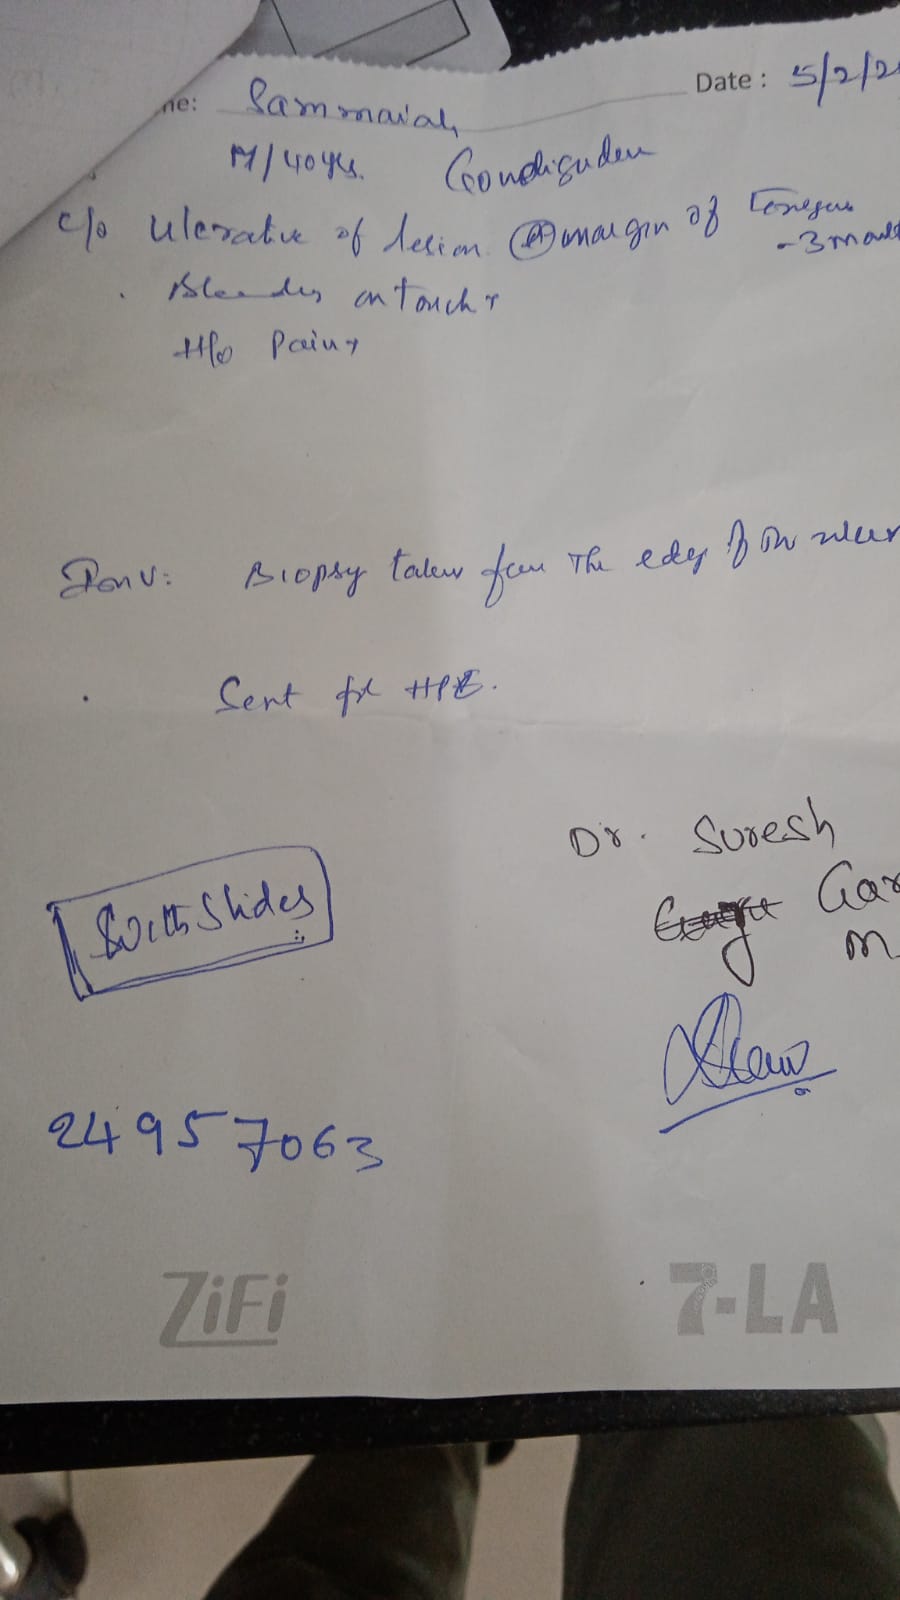 ne: Sammaiah Date : 5/2/2
M/40ys. Gondiguden
c/o Ulcerative of lesion @ margin of Tongue
- 3 mont
Bleeding on touch +
H/o Pain +
Biopsy taken from The edge of the ulcer
Sent for HPE.
Dr. Suresh
Gar
m
With Slides
24957063
ZiFi 7-LA